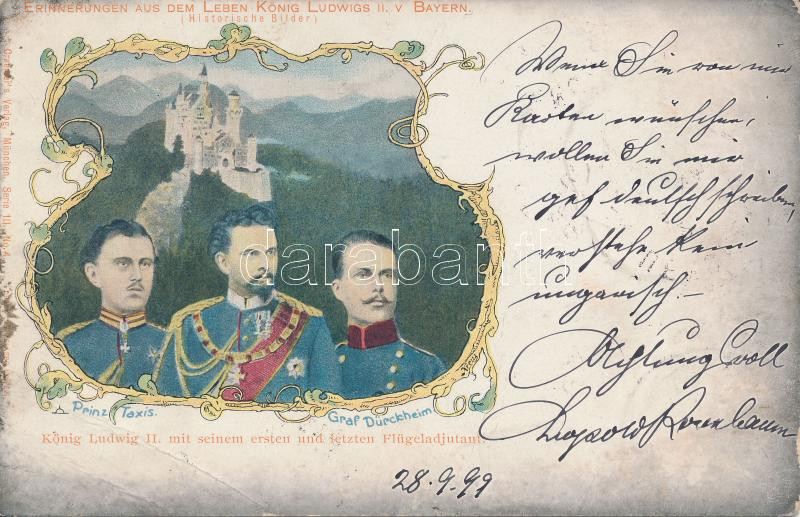 ERINNERUNGEN AUS DEM LEBEN KÖNIG LUDWIGS II. V BAYERN.
(Historische Bilder)
Verlag, München, Serie III, No 4.
Prinz Taxis.
Graf Dürckheim
König Ludwig II. mit seinem ersten und letzten Flügeladjutant.
darabanth
Wenn Sie von mir
Karten wünschen,
wollen Sie mir
gef deutsch schreiben,
verstehe kein
ungarisch.-
Achtungsvoll
Leopold Rosenbaum
28.9.99